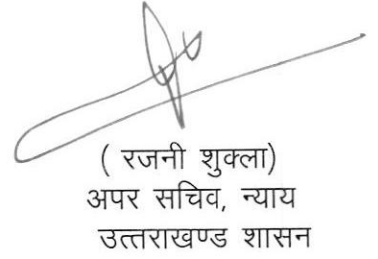 ( रजनी शुक्ला)
अपर सचिव, न्याय
उत्तराखण्ड शासन